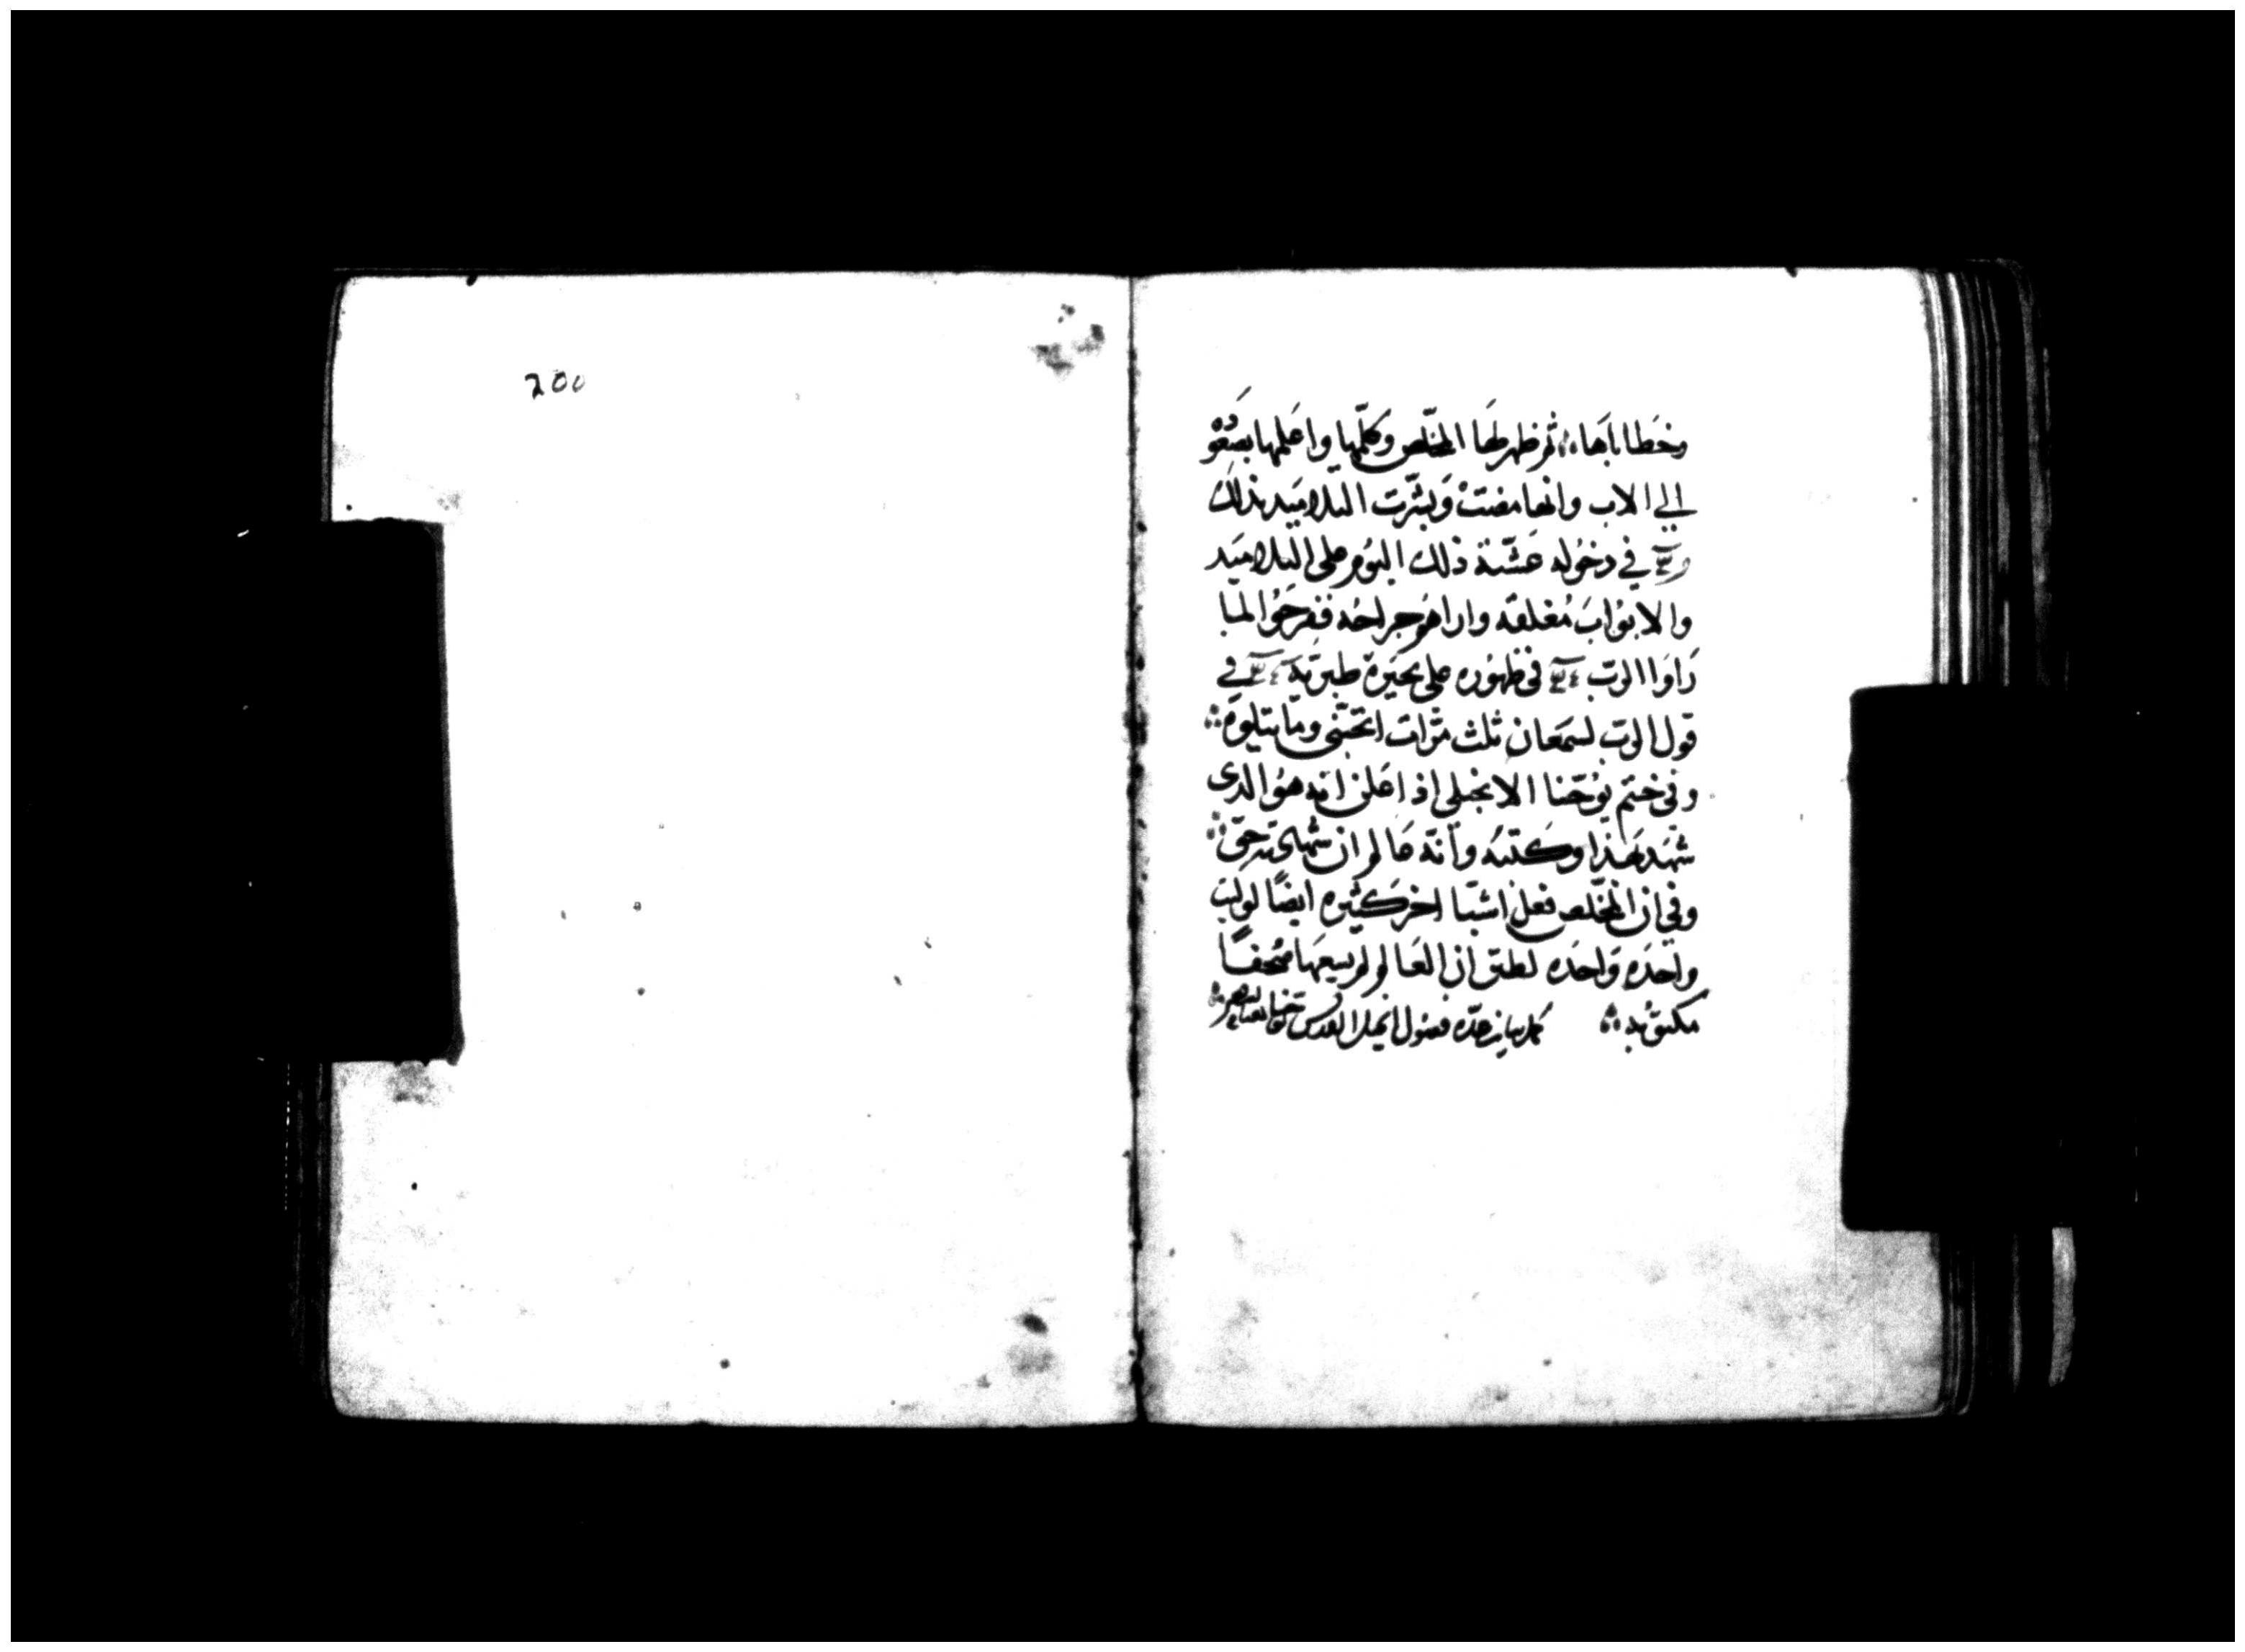 وخطاباهاء ثم ظهر لها المخلّص وكلّمها واعلمها بصُعُوْدَ
الي الاب وانها مضتْ وَبشّرت التلاميَد بذلك
في دخُوله عَشّية ذلك اليَوم على التلاميَد
والابوْابَ مُغلقَه واراهمُ جراحُه ففرحَوُا لما
رَاوَا الربّ في ظهوُره على بحيَرة طبرَيّة في
قول الربّ لسمَعان ثلث مرّات اتحبّني ومَا يتلوَه
وفي ختم يوُحَنا الانجيلي اذ اعَلن انه هوُ الدى
شهَد بهَذا وكتبُه وانّه عَالم ان شهادته حَق
وفي ان المخلّص فعل اشيَا اخر كثيره ايضًا لو كتبت
واحدَه وَاحدَه لظنّ ان العَالم لم يسِعهَا صُحفًا
مكتوُبه كمل بيان عدّه فصُول انجيل القدّيس يوحنا
200